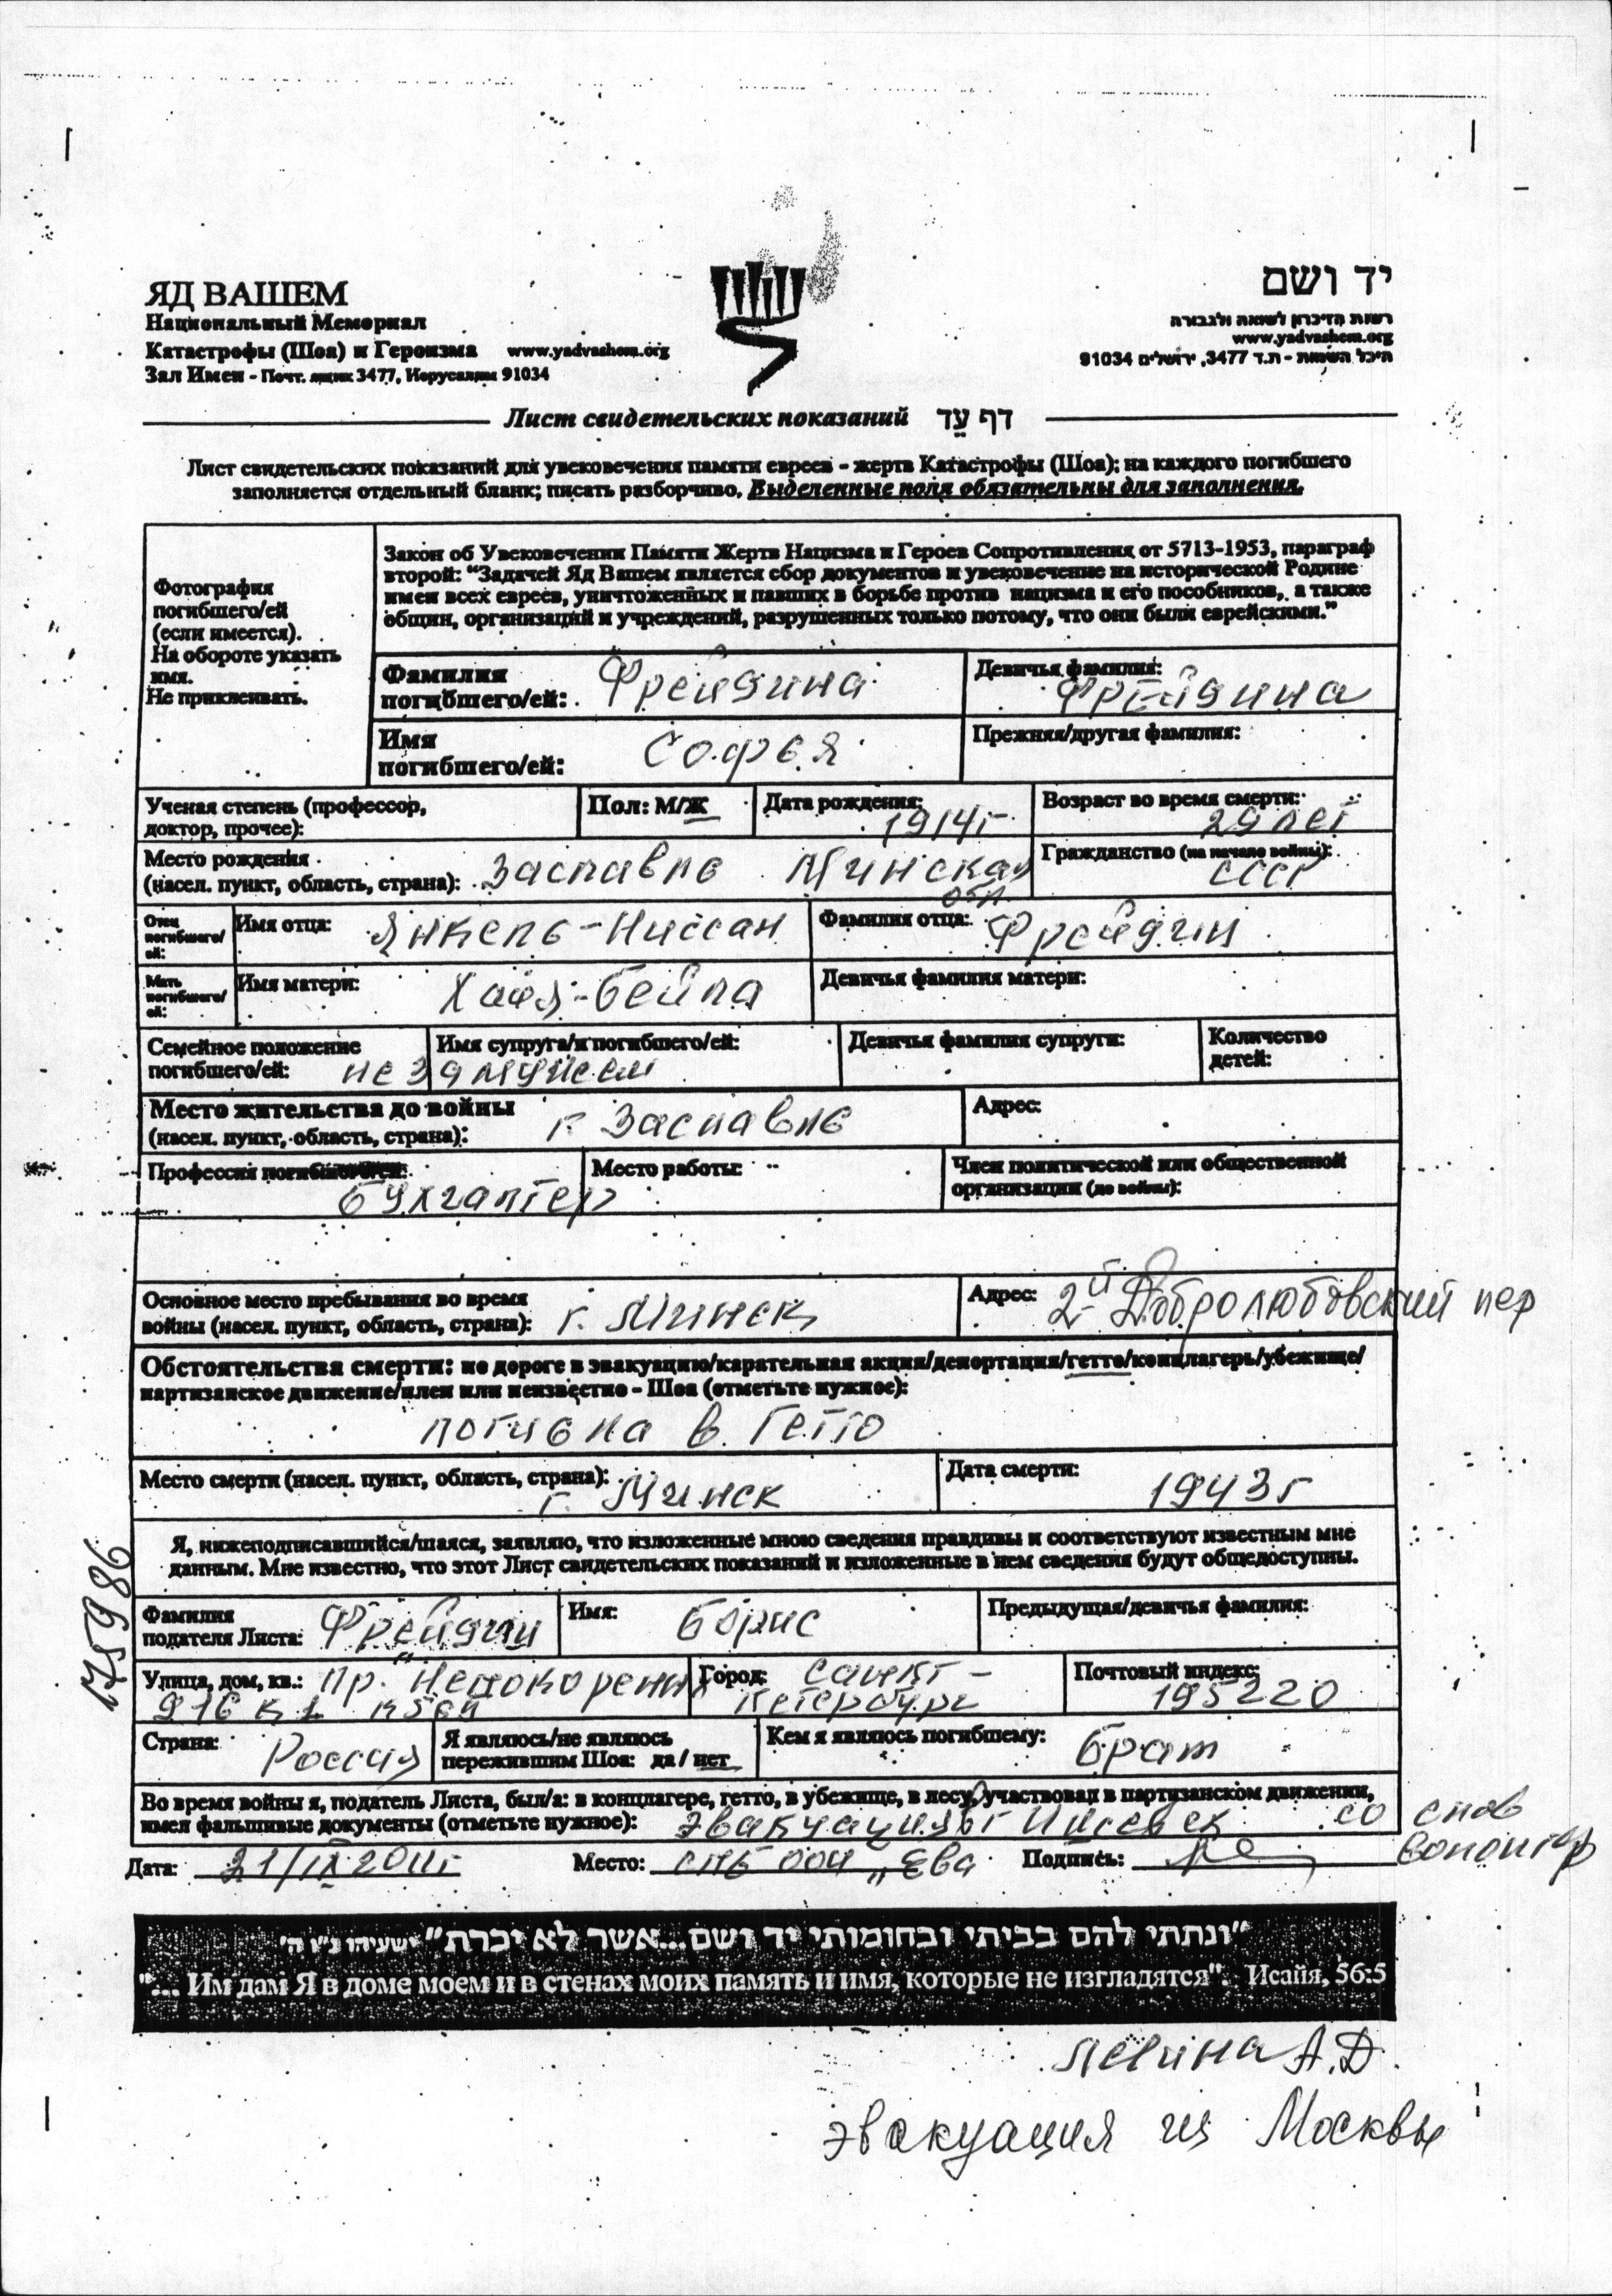 ЯД ВАШЕМ
Национальный Мемориал
Катастрофы (Шоа) и Героизма www.yadvashem.org
Зал Имен - Почт. ящик 3477, Иерусалим 91034
יד ושם
רשות הזיכרון לשואה ולגבורה
www.yadvashem.org
היכל השמות - ת.ד 3477, ירושלים 91034
Лист свидетельских показаний דף עֵד
Лист свидетельских показаний для увековечения памяти евреев - жертв Катастрофы (Шоа); на каждого погибшего
заполняется отдельный бланк; писать разборчиво. Выделенные поля обязательны для заполнения.
Фотография
погибшего/ей
(если имеется).
На обороте указать
имя.
Не приклеивать.
Закон об Увековечении Памяти Жертв Нацизма и Героев Сопротивления от 5713-1953, параграф
второй: "Задачей Яд Вашем является сбор документов и увековечение на исторической Родине
имен всех евреев, уничтоженных и павших в борьбе против нацизма и его пособников, а также
общин, организаций и учреждений, разрушенных только потому, что они были еврейскими."
Фамилия
погибшего/ей: Фрейдина
Девичья фамилия:
Фрейдина
Имя
погибшего/ей: Софья
Прежняя/другая фамилия:
Ученая степень (профессор,
доктор, прочее):
Пол: М/Ж
Дата рождения:
1914г
Возраст во время смерти:
29 лет
Место рождения
(насел. пункт, область, страна): Заславль Минская
обл.
Гражданство (на начало войны):
СССР
Отец
погибшего/
ей:
Имя отца: Янкель-Ниссан
Фамилия отца: Фрейдин
Мать
погибшего/
ей:
Имя матери: Хайя-Бейла
Девичья фамилия матери:
Семейное положение
погибшего/ей: не замужем
Имя супруга/и погибшего/ей:
Девичья фамилия супруги:
Количество
детей:
Место жительства до войны
(насел. пункт, область, страна): г. Заславль
Адрес:
Профессия погибшего/ей:
бухгалтер
Место работы:
Член политической или общественной
организации (до войны):
Основное место пребывания во время
войны (насел. пункт, область, страна): г. Минск
Адрес: 2-й Добролюбовский пер
Обстоятельства смерти: по дороге в эвакуацию/карательная акция/депортация/гетто/концлагерь/убежище/
партизанское движение/плен или неизвестно - Шоа (отметьте нужное):
погибла в Гетто
Место смерти (насел. пункт, область, страна):
г. Минск
Дата смерти:
1943г
Я, нижеподписавшийся/шаяся, заявляю, что изложенные мною сведения правдивы и соответствуют известным мне
данным. Мне известно, что этот Лист свидетельских показаний и изложенные в нем сведения будут общедоступны.
175986
Фамилия
подателя Листа: Фрейдин
Имя: Борис
Предыдущая/девичья фамилия:
Улица, дом, кв.: Пр. Непокоренных
Город: Санкт-
Петербург
Почтовый индекс:
195220
Страна: Россия
Я являюсь/не являюсь
пережившим Шоа: да / нет
Кем я являюсь погибшему: брат
Во время войны я, податель Листа, был/а: в концлагере, гетто, в убежище, в лесу, участвовал в партизанском движении,
имел фальшивые документы (отметьте нужное): эвакуация г Ижевск со слов
Дата: 21/IX 2011г Место: СПБ ООИ „Ева Подпись: волонтер
"ונתתי להם בביתי ובחומותי יד ושם...אשר לא יכרת" ישעיהו נ"ו ה'
"... Им дам Я в доме моем и в стенах моих память и имя, которые не изгладятся". Исайя, 56:5
Левина А.Д.
эвакуация из Москвы